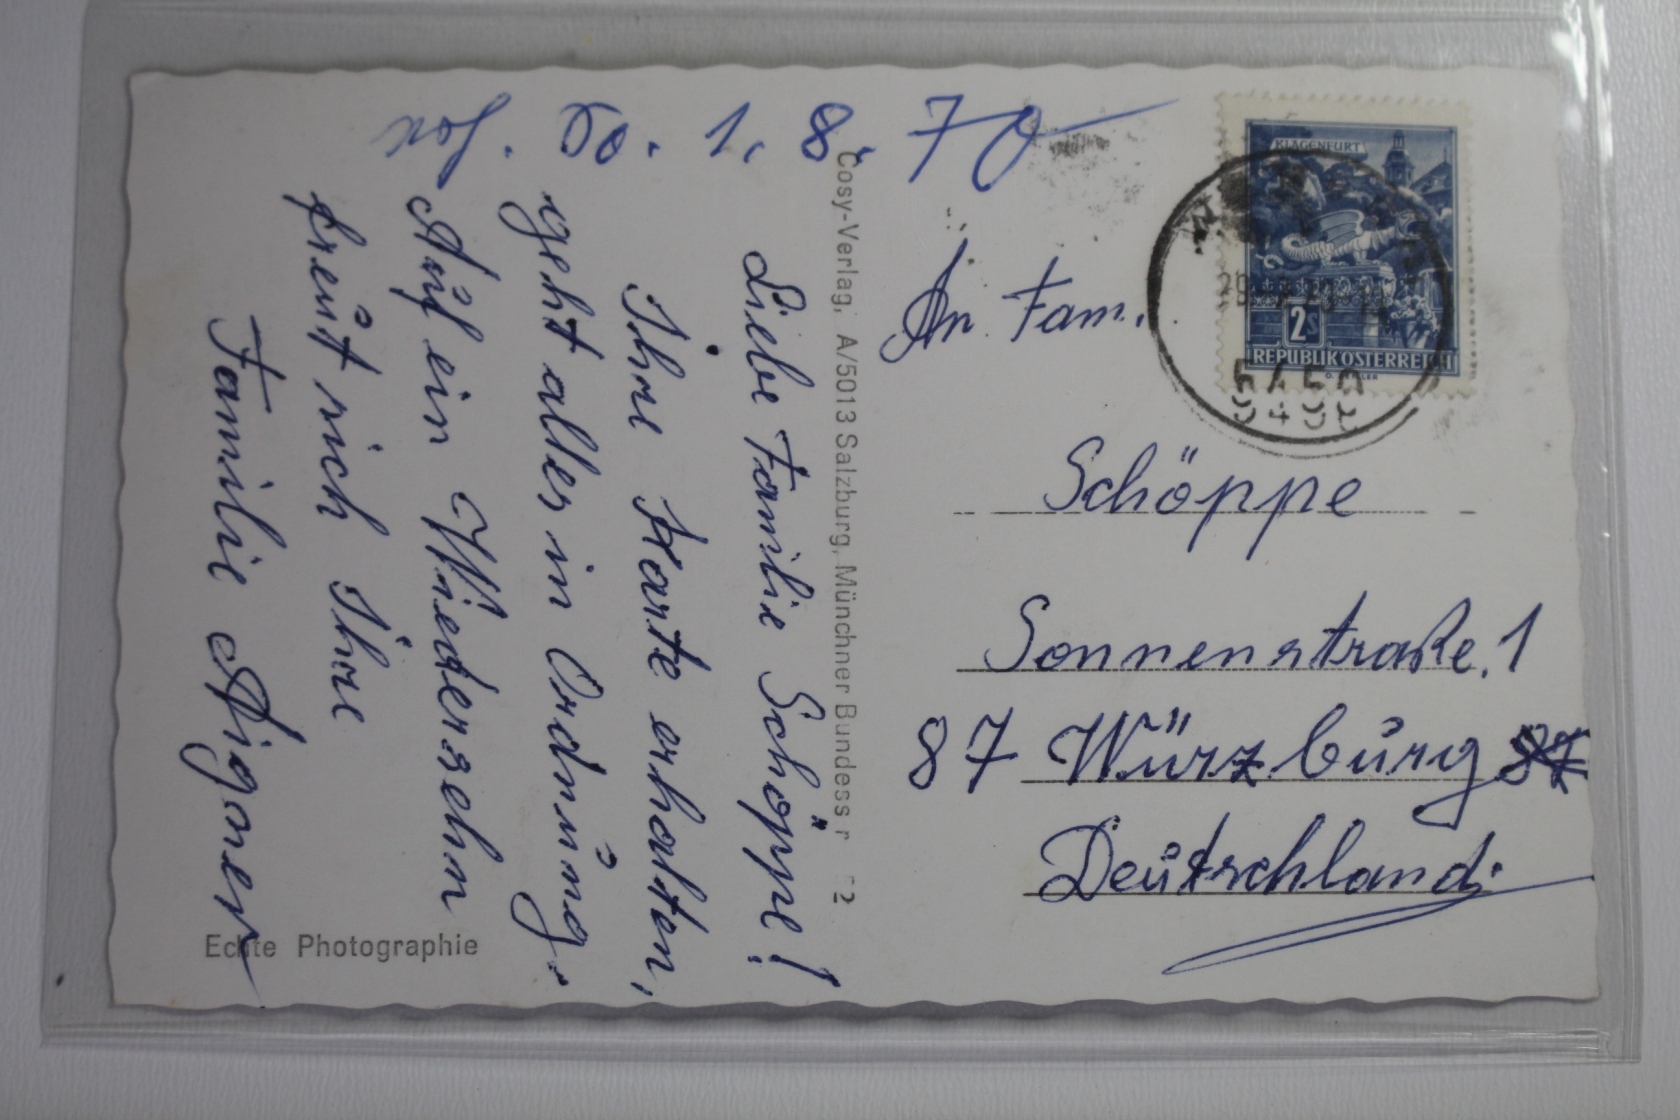 Sa. 1. 8. 70
Liebe Familie Schöppe!
Ihre Karte erhalten,
geht alles in Ordnung.
Auf ein Wiedersehn
freut sich Ihre
Familie Aigner
Echte Photographie
Cosy-Verlag, A/5013 Salzburg, Münchner Bundess r 2
KLAGENFURT
2S
REPUBLIK ÖSTERREICH
An Fam.
Schöppe
Sonnenstraße 1
87 Würzburg
Deutschland